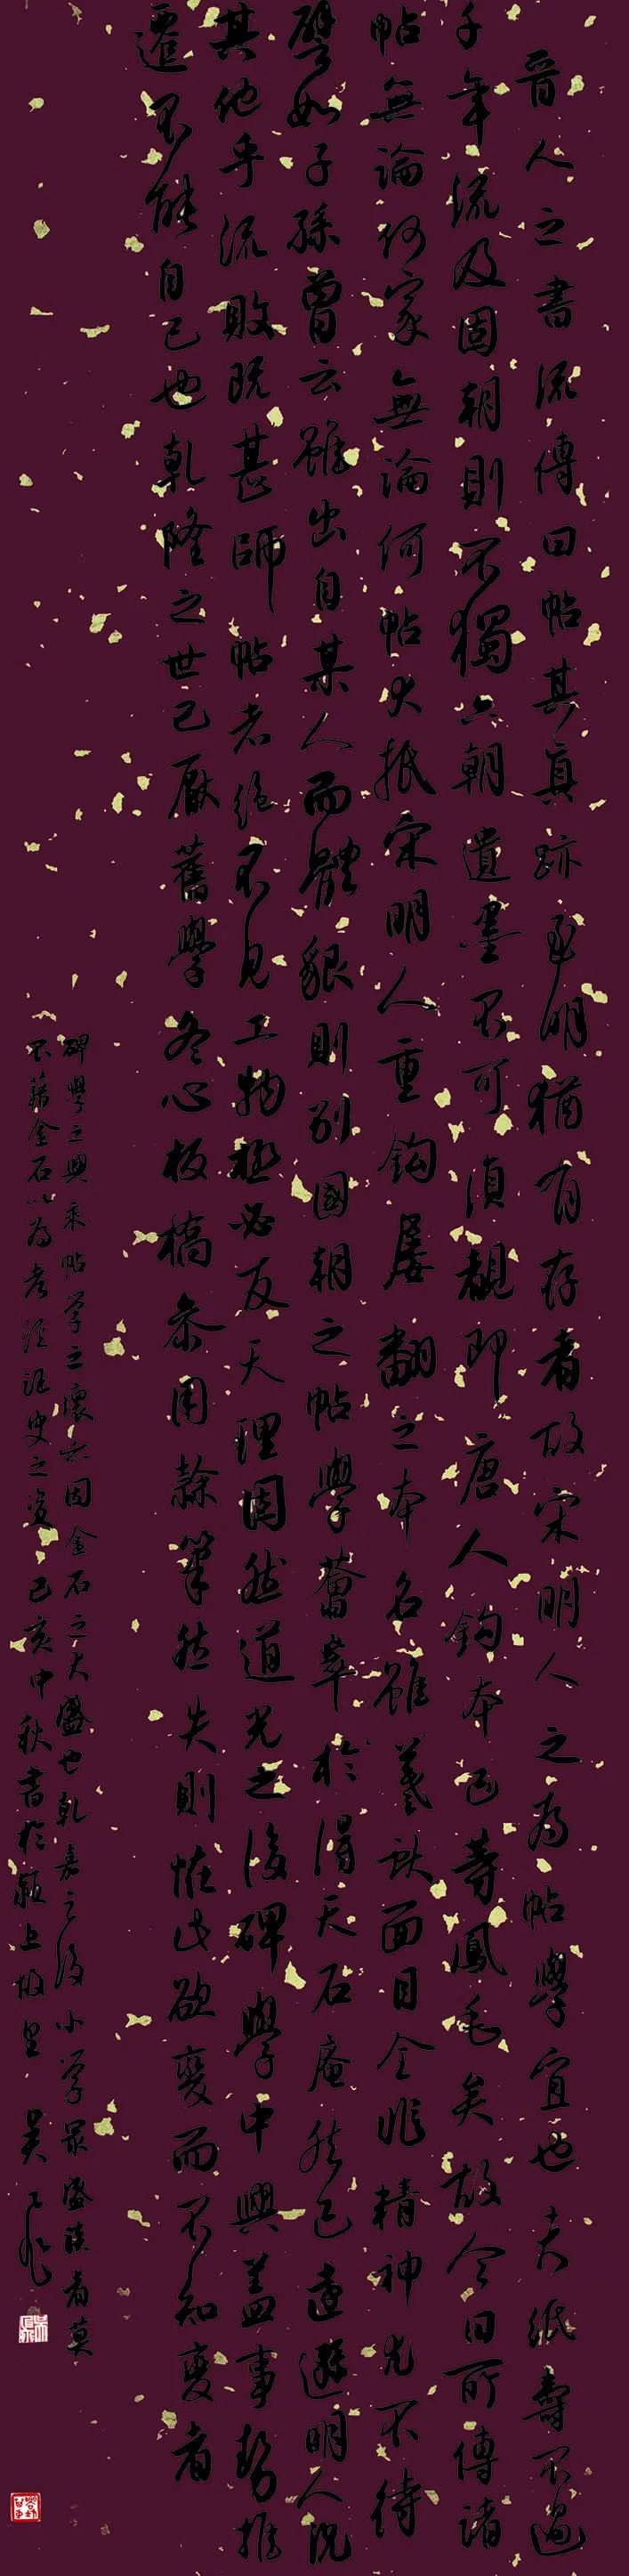 晋人之書流傳曰帖其真跡至明猶有存者故宋明人之為帖學宜也夫紙壽不過
千年流及國朝則不獨六朝遺墨不可復覩即唐人鈎本已等鳳毛矣故今日所傳諸
帖無論何家無論何帖大抵宋明人重鈎屢翻之本名雖羲獻面目全非精神尤不待
譬如子孫曾云雖出自某人而體貌則别國朝之帖學薈萃於得天石庵然已遠遜明人況
其他乎流敗既甚師帖者絕不見工物極必反天理固然道光之後碑學中興蓋事勢推
遷不能自已也乾隆之世已厭舊學冬心板橋參用隸筆然失則怪此欲變而不知變者
碑學之興乘帖學之壞亦因金石之大盛也乾嘉之後小學最盛談者莫
不藉金石以為考經證史之資己亥中秋書於潁上故里吴